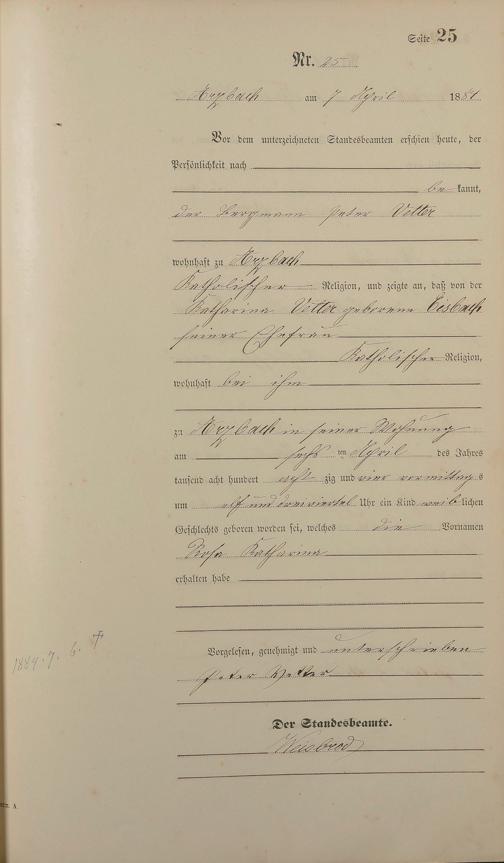 Seite 25
Nr. 25
Arzbach am 7 April 1884
Vor dem unterzeichneten Standesbeamten erschien heute, der
Persönlichkeit nach
be kannt,
der Bergmann Peter Vetter
wohnhaft zu Arzbach
Katholischer Religion, und zeigte an, daß von der
Katharina Vetter geborene Eisbach
seiner Ehefrau
Katholischer Religion,
wohnhaft bei ihm
zu Arzbach in seiner Wohnung
am sechs ten April des Jahres
tausend acht hundert acht zig und vier vormittag s
um elf und dreiviertel Uhr ein Kind weib lichen
Geschlechts geboren worden sei, welches die Vornamen
Rosa Katharina
erhalten habe
1884. 7. 6. †
Vorgelesen, genehmigt und unterschrieben
Peter Vetter
Der Standesbeamte.
Weisbrod
A